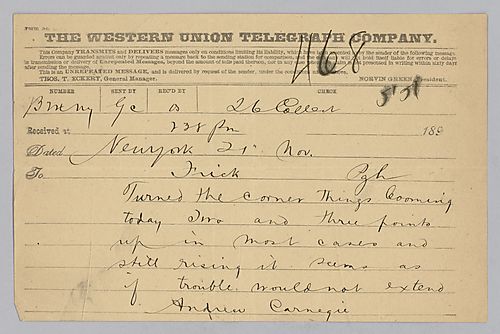 THE WESTERN UNION TELEGRAPH COMPANY.
This Company TRANSMITS and DELIVERS messages only on conditions limiting its liability, which have been assented to by the sender of the following message.
Errors can be guarded against only by repeating a message back to the sending station for comparison, and the Company will not hold itself liable for errors or delays
in transmission or delivery of Unrepeated Messages, beyond the amount of tolls paid thereon, nor in any case where the claim is not presented in writing within sixty days
after sending the message.
This is an UNREPEATED MESSAGE, and is delivered by request of the sender, under the conditions named above.
THOS. T. ECKERT, General Manager. NORVIN GREEN, President.
468
NUMBER SENT BY REC'D BY CHECK
Gc 26 Collect
Received at 238 pm 189
Dated New York 21 Nov.
To Frick Pgh
Turned the corner things booming
today two and three points
up in most cases and
still rising it seems as
if trouble would not extend
Andrew Carnegie